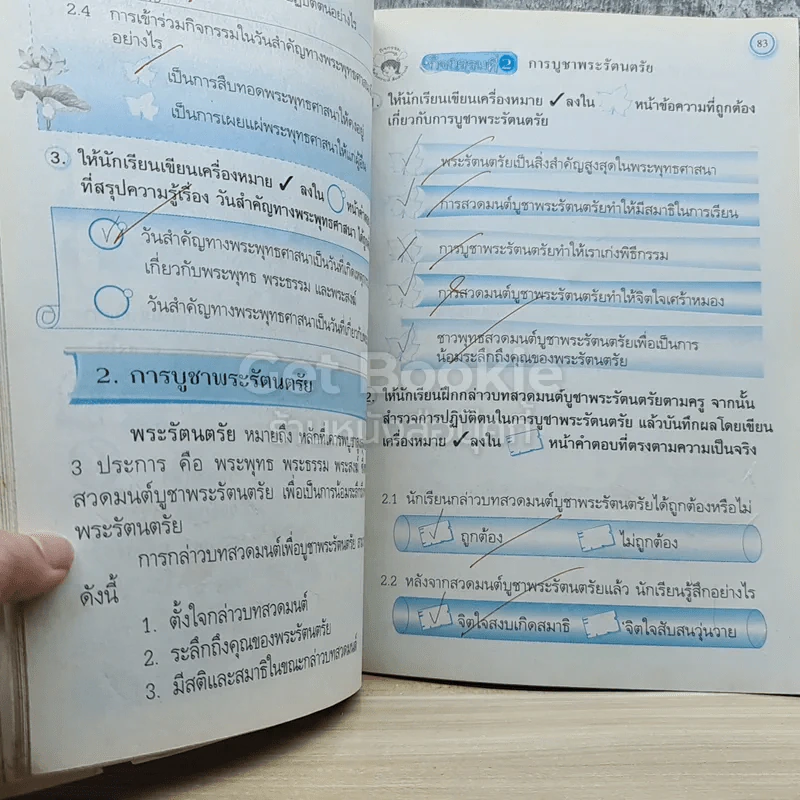 2.4 การเข้าร่วมกิจกรรมในวันสำคัญทางพระพุทธศาสนา
อย่างไร
เป็นการสืบทอดพระพุทธศาสนาให้คงอยู่
เป็นการเผยแผ่พระพุทธศาสนาให้แก่ผู้อื่น
3. ให้นักเรียนเขียนเครื่องหมาย ✓ ลงใน ◯ หน้า
ที่สรุปความรู้เรื่อง วันสำคัญทางพระพุทธศาสนา
วันสำคัญทางพระพุทธศาสนาเป็นวันที่เกิด
เกี่ยวกับพระพุทธ พระธรรม และพระสงฆ์
วันสำคัญทางพระพุทธศาสนาเป็นวันที่เกี่ยวกับ
2. การบูชาพระรัตนตรัย
พระรัตนตรัย หมายถึง หลักที่เคารพบูชา
3 ประการ คือ พระพุทธ พระธรรม พระสงฆ์
สวดมนต์บูชาพระรัตนตรัย เพื่อเป็นการน้อมระลึกถึง
พระรัตนตรัย
การกล่าวบทสวดมนต์เพื่อบูชาพระรัตนตรัย
ดังนี้
1. ตั้งใจกล่าวบทสวดมนต์
2. ระลึกถึงคุณของพระรัตนตรัย
3. มีสติและสมาธิในขณะกล่าวบทสวดมนต์
83
2 การบูชาพระรัตนตรัย
ให้นักเรียนเขียนเครื่องหมาย ✓ ลงใน หน้าข้อความที่ถูกต้อง
เกี่ยวกับการบูชาพระรัตนตรัย
พระรัตนตรัยเป็นสิ่งสำคัญสูงสุดในพระพุทธศาสนา
การสวดมนต์บูชาพระรัตนตรัยทำให้มีสมาธิในการเรียน
การบูชาพระรัตนตรัยทำให้เราเก่งพิธีกรรม
การสวดมนต์บูชาพระรัตนตรัยทำให้จิตใจเศร้าหมอง
ชาวพุทธสวดมนต์บูชาพระรัตนตรัยเพื่อเป็นการ
น้อมระลึกถึงคุณของพระรัตนตรัย
2. ให้นักเรียนฝึกกล่าวบทสวดมนต์บูชาพระรัตนตรัยตามครู จากนั้น
สำรวจการปฏิบัติตนในการบูชาพระรัตนตรัย แล้วบันทึกผลโดยเขียน
เครื่องหมาย ✓ ลงใน หน้าคำตอบที่ตรงตามความเป็นจริง
2.1 นักเรียนกล่าวบทสวดมนต์บูชาพระรัตนตรัยได้ถูกต้องหรือไม่
✓ ถูกต้อง ไม่ถูกต้อง
2.2 หลังจากสวดมนต์บูชาพระรัตนตรัยแล้ว นักเรียนรู้สึกอย่างไร
✓ จิตใจสงบเกิดสมาธิ จิตใจสับสนวุ่นวาย
Get Bookie
ร้านหนังสือกุ๊กกี้